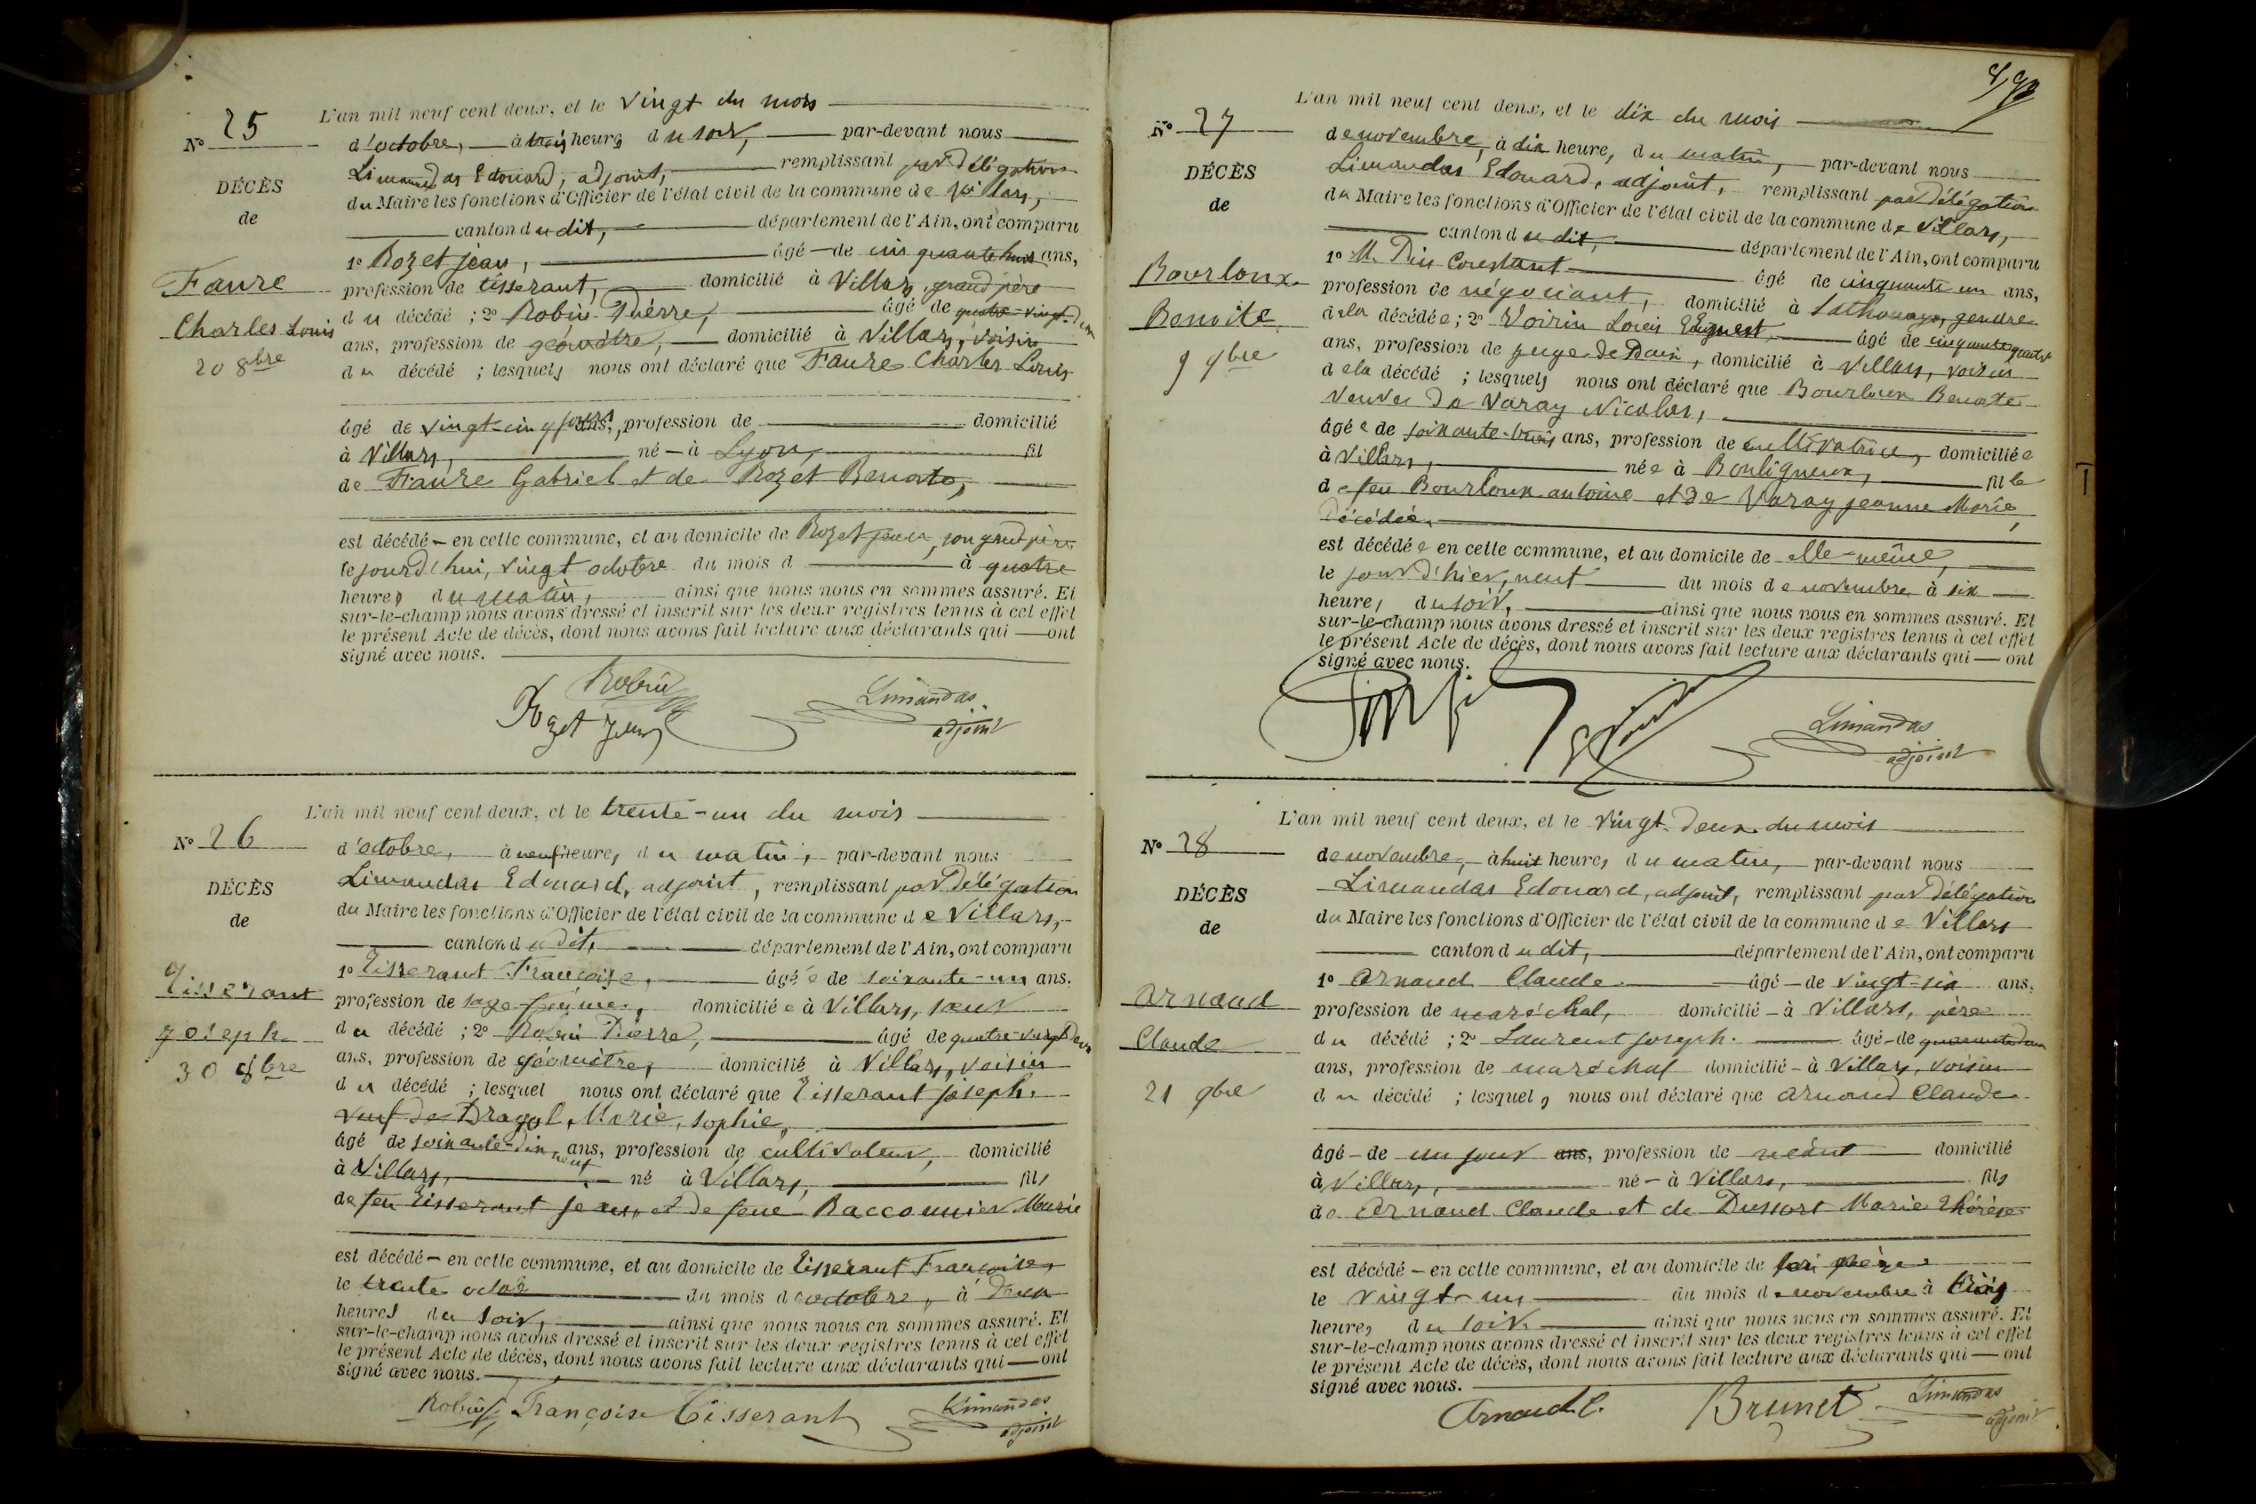 L'an mil neuf cent deux, et le vingt du mois
N° 25
d'octobre, à trois heures du soir, par-devant nous
Limandas Edouard, adjoint, remplissant par délégation
DÉCÈS
du Maire les fonctions d'Officier de l'état civil de la commune de Villars,
de
canton du dit, département de l'Ain, ont comparu
1° Rozet jean, âgé de cinquante huit ans,
Faure
profession de tisserant, domicilié à Villars, grand père
Charles Louis
du décédé ; 2° Robin Pierre, âgé de quatre-vingt-deux
ans, profession de géomètre, domicilié à Villars, voisin
20 8bre
du décédé ; lesquels nous ont déclaré que Faure Charles Louis
âgé de vingt-cinq jours ans, profession de domicilié
à Villars, né à Lyon, fil
de Faure Gabriel et de Rozet Benoite,
est décédé en cette commune, et au domicile de Rozet jean, son grand père
le jourd'hui, vingt octobre du mois d à quatre
heures du matin, ainsi que nous nous en sommes assuré. Et
sur-le-champ nous avons dressé et inscrit sur les deux registres tenus à cet effet
le présent Acte de décès, dont nous avons fait lecture aux déclarants qui ont
signé avec nous.
Robin
Rozet Jean
Limandas
adjoint
L'an mil neuf cent deux, et le trente-un du mois
N° 26
d'octobre, à neuf heures du matin, par-devant nous
Limandas Edouard, adjoint, remplissant par Délégation
DÉCÈS
du Maire les fonctions d'Officier de l'état civil de la commune de Villars,
de
canton du dit, département de l'Ain, ont comparu
1° Tisserant Françoise, âgée de soixante-un ans.
Tisserant
profession de sage-femme, domiciliée à Villars, soeur
Joseph
du décédé ; 2° Robin Pierre, âgé de quatre-vingt Deux
ans, profession de géomètre, domicilié à Villars, voisin
30 8bre
du décédé ; lesquel nous ont déclaré que Tisserant joseph
veuf de Dragol, Marie, Sophie,
âgé de soixante-dix neuf ans, profession de cultivateur, domicilié
à Villars, né à Villars, fils
de feu Tisserant jean et de feue Raccounier Marie
est décédé en cette commune, et au domicile de Tisserant Françoise,
le trente du mois d'octobre, à Deux
heures du soir, ainsi que nous nous en sommes assuré. Et
sur-le-champ nous avons dressé et inscrit sur les deux registres tenus à cet effet
le présent Acte de décès, dont nous avons fait lecture aux déclarants qui ont
signé avec nous.
Robin Françoise Tisserant Limandas
adjoint
L'an mil neuf cent deux, et le dix du mois
N° 27
de novembre, à dix heure, du matin, par-devant nous
Limandas Edouard, adjoint, remplissant par Délégation
DÉCÈS
du Maire les fonctions d'Officier de l'état civil de la commune de Villars,
de
canton du dit, département de l'Ain, ont comparu
1° M. Constant âgé de cinquante un ans,
Bourloux
profession de négociant, domicilié à gendre
Benoite
de la décédée ; 2° Voirin Louis âgé de cinquante quatre
ans, profession de juge de Paix, domicilié à Villars, voisin
9 9bre
de la décédé ; lesquels nous ont déclaré que Bourloux Benoite
veuve de Varay Nicolas,
âgée de soixante-trois ans, profession de cultivatrice, domiciliée
à Villars, née à Bouligneux, fille
de feu Bourloux antoine et de Varay jeanne Marie
Décédée,
est décédée en cette commune, et au domicile de elle-même,
le jour d'hier, neuf du mois de novembre à six
heures du soir, ainsi que nous nous en sommes assuré. Et
sur-le-champ nous avons dressé et inscrit sur les deux registres tenus à cet effet
le présent Acte de décès, dont nous avons fait lecture aux déclarants qui ont
signé avec nous.
Limandas
adjoint
L'an mil neuf cent deux, et le vingt-deux du mois
N° 28
de novembre, à huit heures du matin, par-devant nous
Limandas Edouard, adjoint, remplissant par délégation
DÉCÈS
du Maire les fonctions d'Officier de l'état civil de la commune de Villars
de
canton du dit, département de l'Ain, ont comparu
1° Arnaud Claude âgé de vingt-six ans.
Arnaud
profession de maréchal, domicilié à Villars, père
Claude
du décédé ; 2° Laurent joseph. âgé de quarante deux
ans, profession de maréchal domicilié à Villars, voisin
21 9bre
du décédé ; lesquels nous ont déclaré que Arnaud Claude
âgé de un jour ans, profession de néant domicilié
à Villars, né à Villars, fils
de Arnaud Claude et de Dussort Marie Thérèse
est décédé en cette commune, et au domicile de son père
le vingt-un du mois de novembre à cinq
heures du soir ainsi que nous nous en sommes assuré. Et
sur-le-champ nous avons dressé et inscrit sur les deux registres tenus à cet effet
le présent Acte de décès, dont nous avons fait lecture aux déclarants qui ont
signé avec nous.
Arnaud C. Brunet Limandas
adjoint